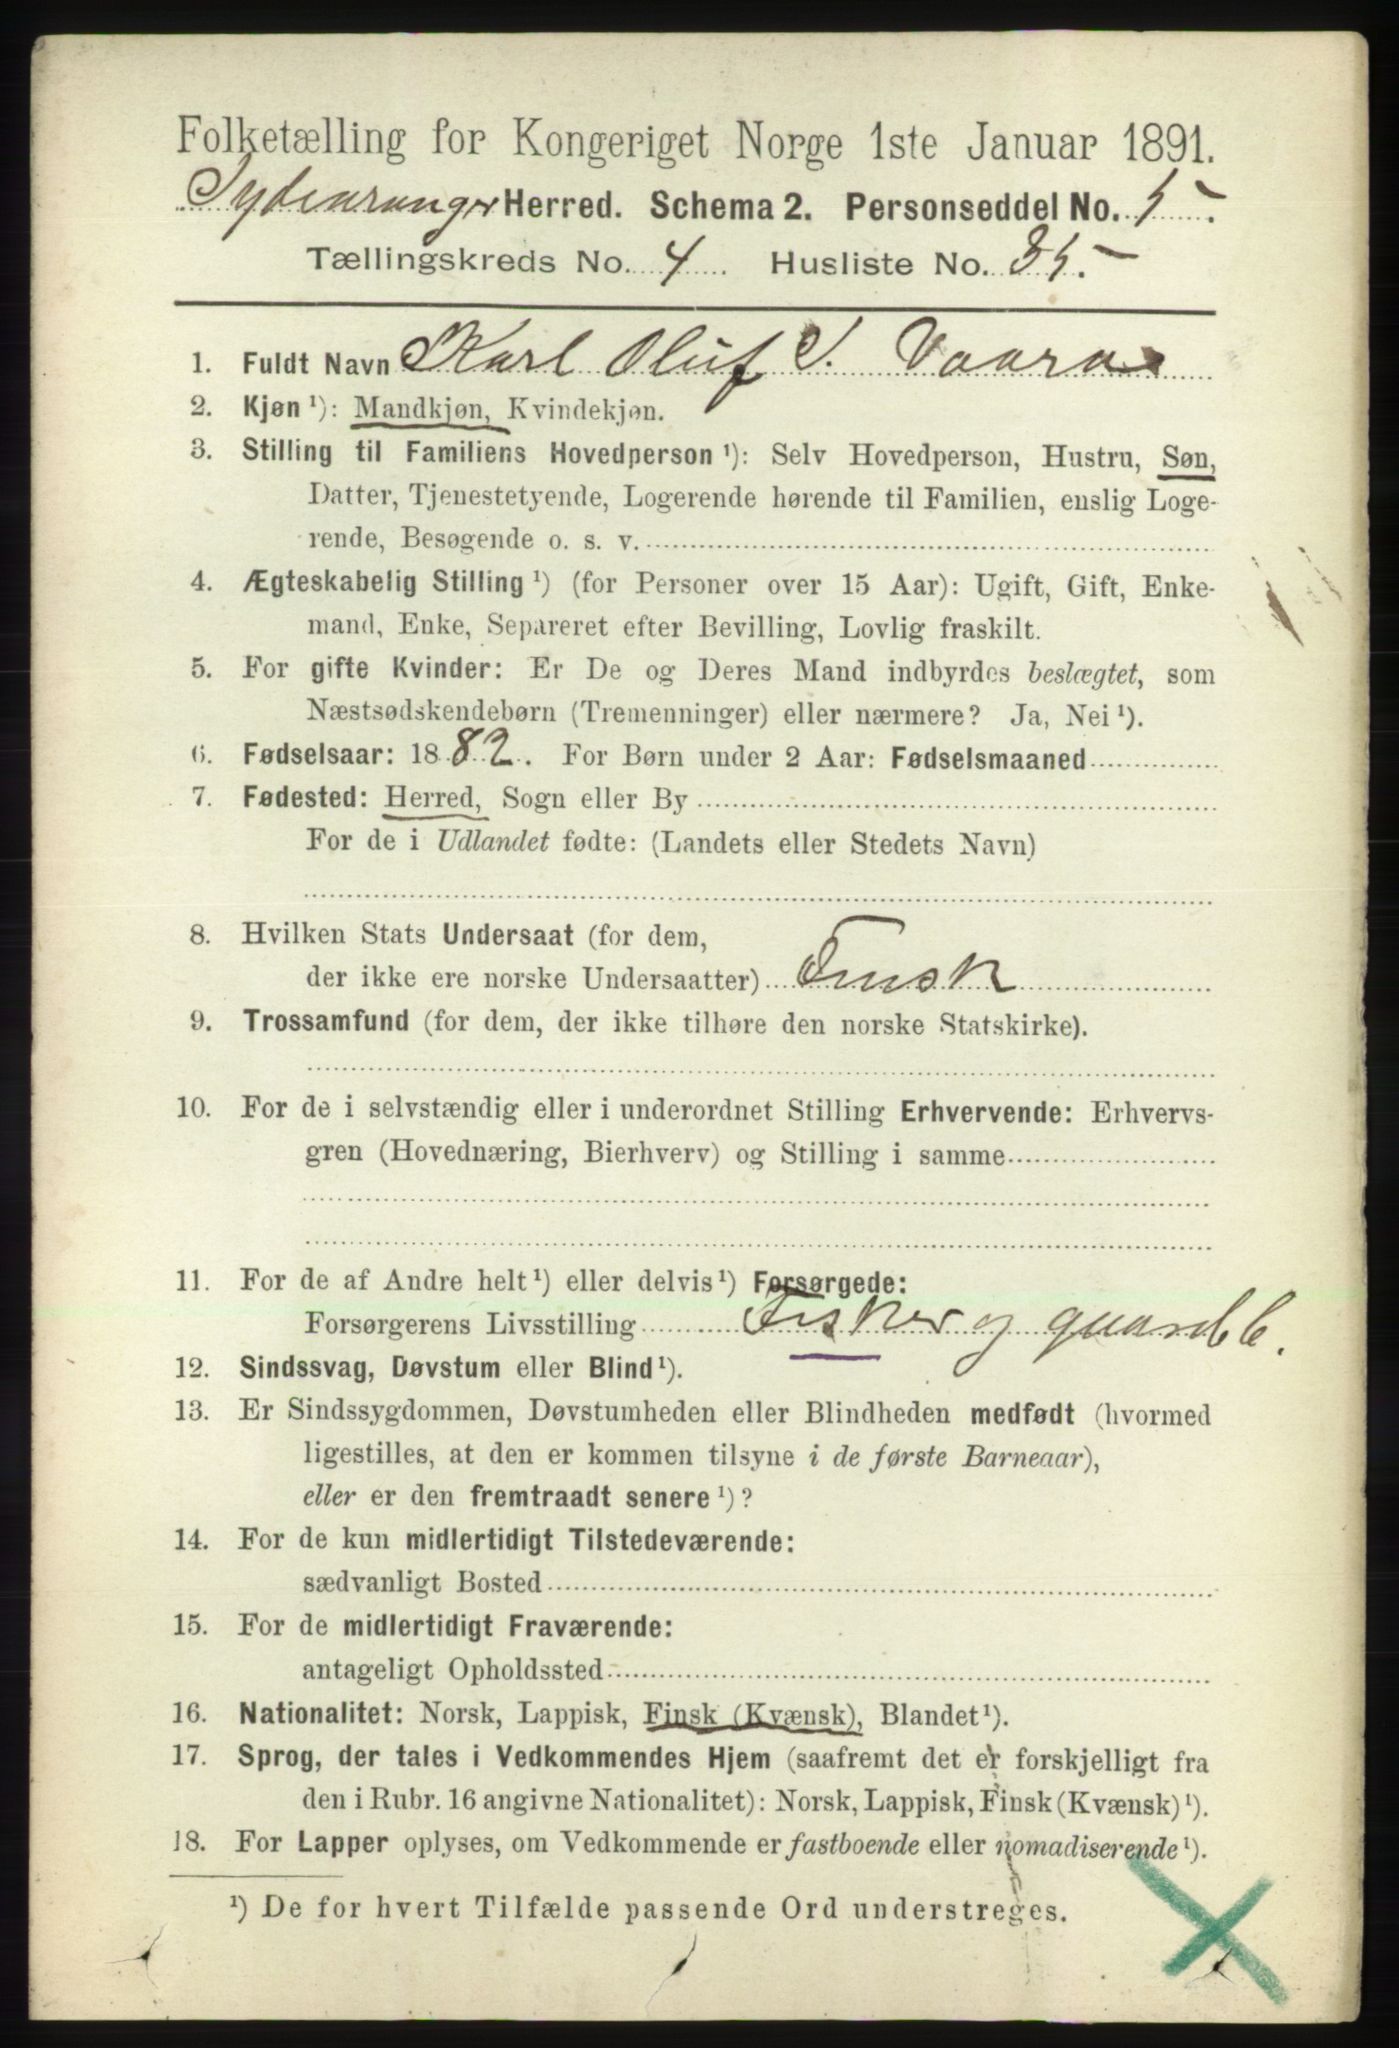 Folketælling for Kongeriget Norge 1ste Januar 1891.
Sydvaranger Herred. Schema 2. Personseddel No. 5.
Tællingskreds No. 4 Husliste No. 35.
1. Fuldt Navn Karl Oluf I. Vaara
2. Kjøn ¹): Mandkjøn, Kvindekjøn.
3. Stilling til Familiens Hovedperson ¹): Selv Hovedperson, Hustru, Søn,
Datter, Tjenestetyende, Logerende hørende til Familien, enslig Loge-
rende, Besøgende o. s. v.
4. Ægteskabelig Stilling ¹) (for Personer over 15 Aar): Ugift, Gift, Enke-
mand, Enke, Separeret efter Bevilling, Lovlig fraskilt.
5. For gifte Kvinder: Er De og Deres Mand indbyrdes beslægtet, som
Næstsødskendebørn (Tremenninger) eller nærmere? Ja, Nei ¹).
6. Fødselsaar: 1882. For Børn under 2 Aar: Fødselsmaaned
7. Fødested: Herred, Sogn eller By
For de i Udlandet fødte: (Landets eller Stedets Navn)
8. Hvilken Stats Undersaat (for dem,
der ikke ere norske Undersaatter) Finsk
9. Trossamfund (for dem, der ikke tilhøre den norske Statskirke).
10. For de i selvstændig eller i underordnet Stilling Erhvervende: Erhvervs-
gren (Hovednæring, Bierhverv) og Stilling i samme
11. For de af Andre helt ¹) eller delvis ¹) Forsørgede:
Forsørgerens Livsstilling Fisker og
12. Sindssvag, Døvstum eller Blind ¹).
13. Er Sindssygdommen, Døvstumheden eller Blindheden medfødt (hvormed
ligestilles, at den er kommen tilsyne i de første Barneaar),
eller er den fremtraadt senere ¹)?
14. For de kun midlertidigt Tilstedeværende:
sædvanligt Bosted
15. For de midlertidigt Fraværende:
antageligt Opholdssted
16. Nationalitet: Norsk, Lappisk, Finsk (Kvænsk), Blandet ¹).
17. Sprog, der tales i Vedkommendes Hjem (saafremt det er forskjelligt fra
den i Rubr. 16 angivne Nationalitet): Norsk, Lappisk, Finsk (Kvænsk) ¹).
18. For Lapper oplyses, om Vedkommende er fastboende eller nomadiserende ¹).
¹) De for hvert Tilfælde passende Ord understreges.